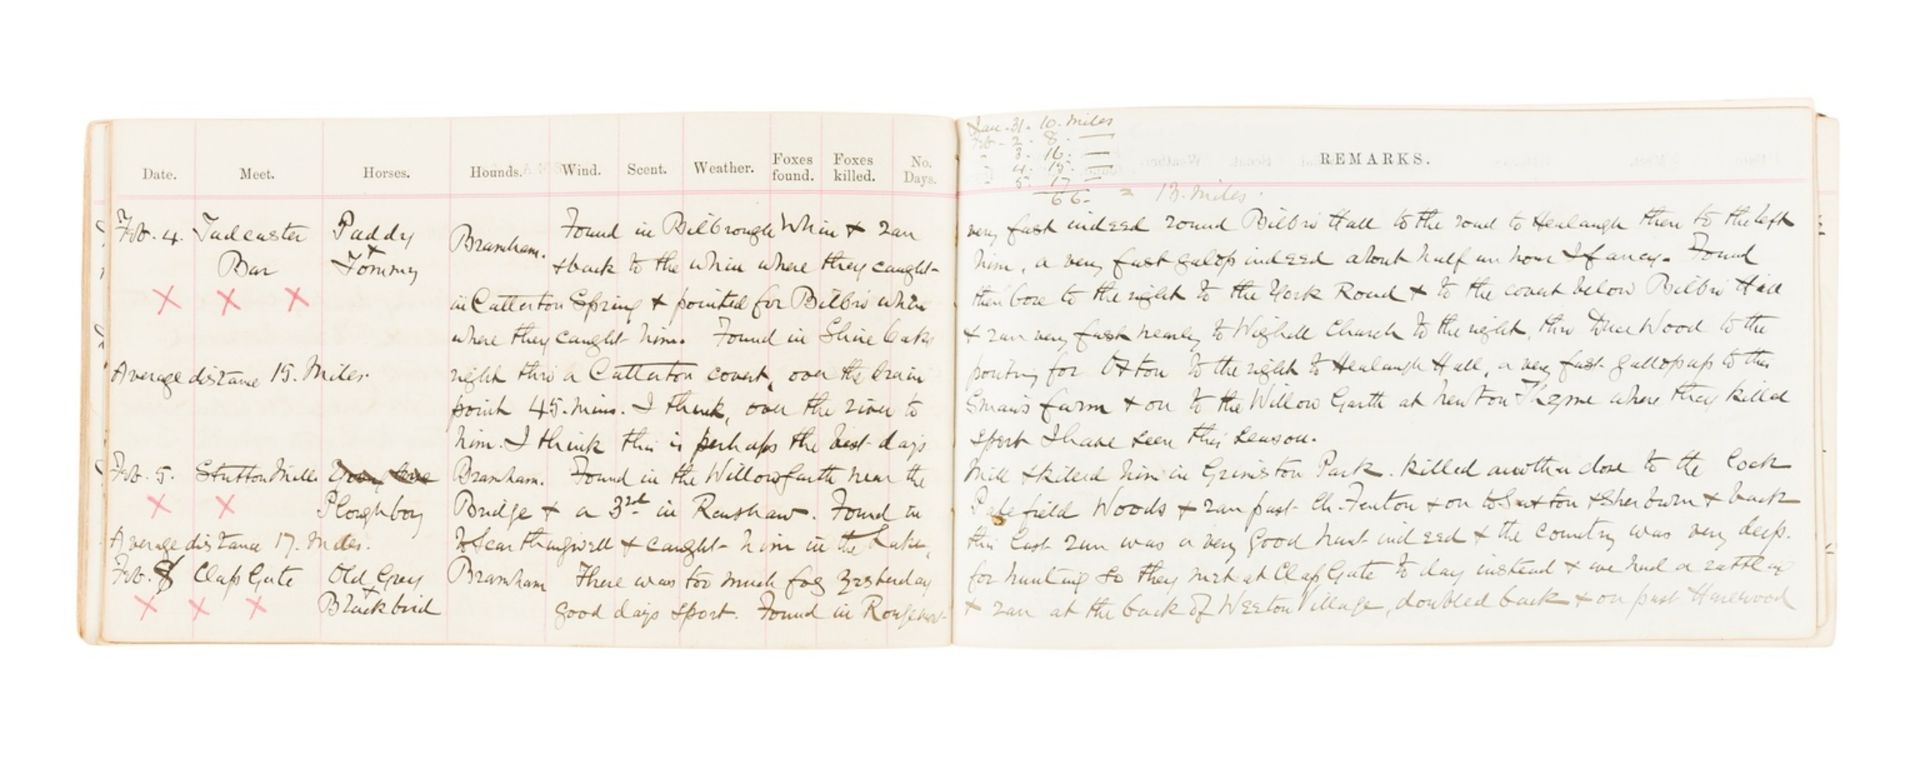 Jan. 31. 10. Miles
Feb - 2. 8.
" 3. 16.
" 4. 15.
" 5. 17
66 - = 13. Miles.
Date. Meet. Horses. Hounds. Wind. Scent. Weather. Foxes found. Foxes killed. No. Days. REMARKS.
Feb. 4. Tadcaster Bar Paddy + Tommy Bramham. Found in Bilbrough Whin & ran very fast indeed round Bilbro' Hall to the road to Healaugh then to the left
& back to the whin where they caught him, a very fast galop indeed about half an hour I fancy. Found
in Catterton Spring & pointed for Bilbro' whin then bore to the right to the York Road & to the covert below Bilbro' Hall
where they caught him. Found in Shire Oaks & ran very fast nearly to Wighill Church to the right, thro' Duce Wood to the
Average distance 15. Miles.
right thro' a Catterton covert, over the drain pointing for to the right to Healaugh Hall, a very fast gallop up to this
point 45. mins. I think, over the river to farm & on to the Willow Garth at Newton Thyme where they killed
him. I think this is perhaps the best days sport I have seen this season.
Feb. 5. Stutton Mill Ploughboy Bramham. Found in the Willow Garth near the Mill & killed him in Grimston Park. Killed another close to the Cock
Bridge & a 3rd in Renshaw. Found in Patefield Woods & ran past Ch. Fenton & on to & Sherburn & back
Average distance 17. Miles.
to Scarthingwell & caught him in the Lake, this last run was a very good hunt indeed & the country was very deep.
Feb. 8 Clap Gate Old Grey + Blackbird Bramham There was too much fog yesterday for hunting so they met at Clap Gate to day instead & we had a rattling
good days sport. Found in & ran at the back of Weeton Village, doubled back & on past Harewood